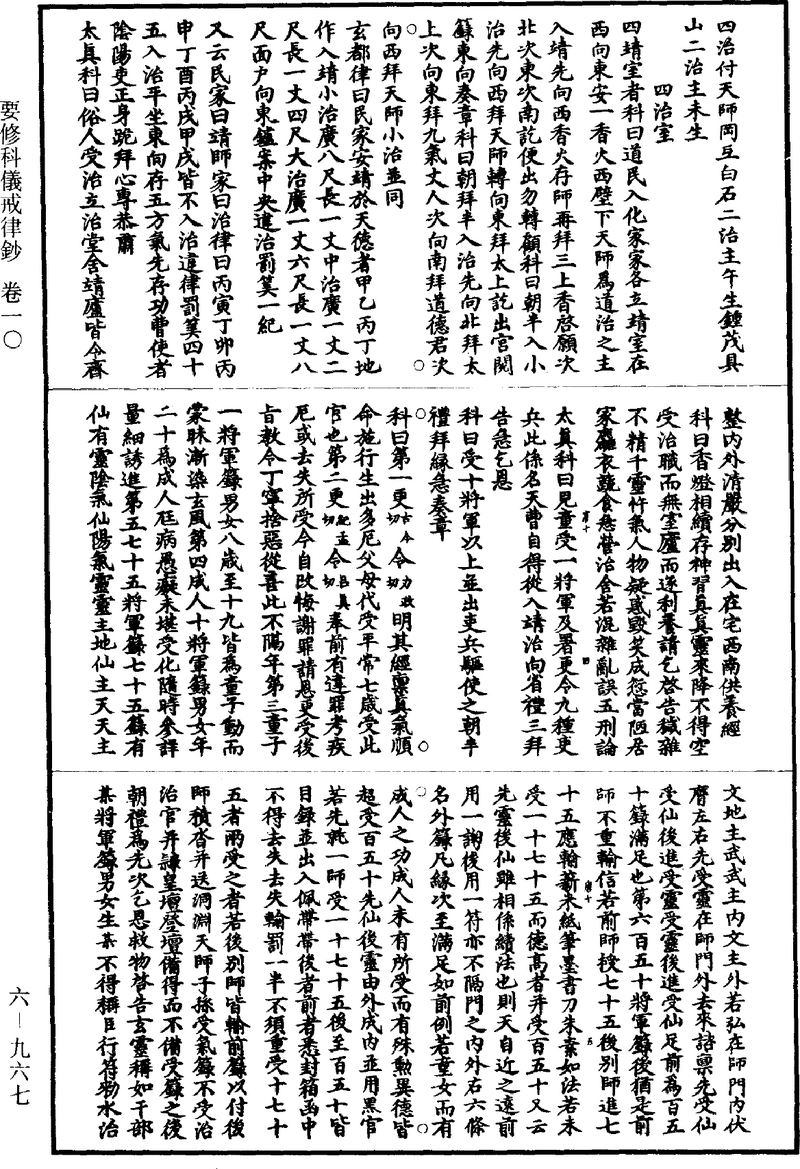 四治付天師岡互白石二治主午生鍾茂具
山二治主未生
四治室
四靖室者科曰道民入化家家各立靖室在
西向東安一香火西壁下天師為道治之主
入靖先向西香火存師再拜三上香啓願次
北次東次南訖便出勿轉顧科曰朝半入小
治先向西拜天師轉向東拜太上訖出宮閱
籙東向奏章科曰朝拜半入治先向北拜太
上次向東拜九氣丈人次向南拜道德君次
向西拜天師小治並同
玄都律曰民家安靖於天德者甲乙丙丁地
作入靖小治廣八尺長一丈中治廣一丈二
尺長一丈四尺大治廣一丈六尺長一丈八
尺面戶向東鑪案中央違治罰筭一紀
又云民家曰靖師家曰治律曰丙寅丁卯丙
申丁酉丙戌甲戌皆不入治違律罰筭四十
五入治平坐東向存五方氣先存功曹使者
陰陽吏正身跪拜心專恭肅
太真科曰俗人受治立治堂舍靖廬皆令齊
整內外清嚴分別出入在宅西南供養經
科曰香燈相續存神習真真靈來降不得空
受治職而無室廬而逐利養請乞啓告穢雜
不精千靈忤氣人物疑惑毀笑成愆當陋居
家麤衣蔬食急營治舍若混雜亂誤五刑論
太真科曰見童受一將軍及署更令九種吏
兵此係名天曹自得從入靖治向省禮三拜
告急乞恩
科曰受十將軍以上並出吏兵驅使之朝半
禮拜緣急奏章
科曰第一更古今切令力政切明其經稟真氣順
命施行生出多厄父母代受平常七歲受此
官也第二更紀孟切令呂真切奉前有違罪考疾
厄或去失所受今自改悔謝罪請恩更受後
旨教令丁寧捨惡從善此不隔年第三童子
一將軍籙男女八歲至十九皆為童子動而
蒙昧漸染玄風第四成人十將軍籙男女年
二十為成人尫病愚癡未堪受化隨時參詳
量細誘進第五七十五將軍籙七十五籙有
仙有靈陰氣仙陽氣靈靈主地仙主天天主
文地主武武主內文主外若弘在師門內伏
膺左右先受靈在師門外去來諮稟先受仙
受仙後進受靈受靈後進受仙足前為百五
十籙滿足也第六百五十將軍籙後猶是前
師不重輸信若前師授七十五後別師進七
十五應輸薪米紙筆墨書刀朱素如法若未
受一十七十五而德高者并受百五十又云
先靈後仙雖相係續法也則天自近之遠前
用一詢後用一符亦不隔門之內外右六條
名外籙凡緣次至滿足如前例若童女而有
成人之功成人未有所受而有殊勳異德皆
超受百五十先仙後靈由外成內並用黑官
若先詵一師受一十七十五後至百五十皆
目錄並出入佩帶帶後者前者悉封箱函中
不得去失去失輸罰一半不須重受十七十
五者兩受之者若後別師皆輸前籙以付後
師積沓并送洞淵天師子孫受氣籙不受治
治官并隸皇壇登壇備得而不備受籙之後
朝禮為先次乞恩救物啓告玄靈稱如干部
某將軍籙男女生某不得稱臣行符勑水治
要修科儀戒律鈔 卷一〇
六—九六七